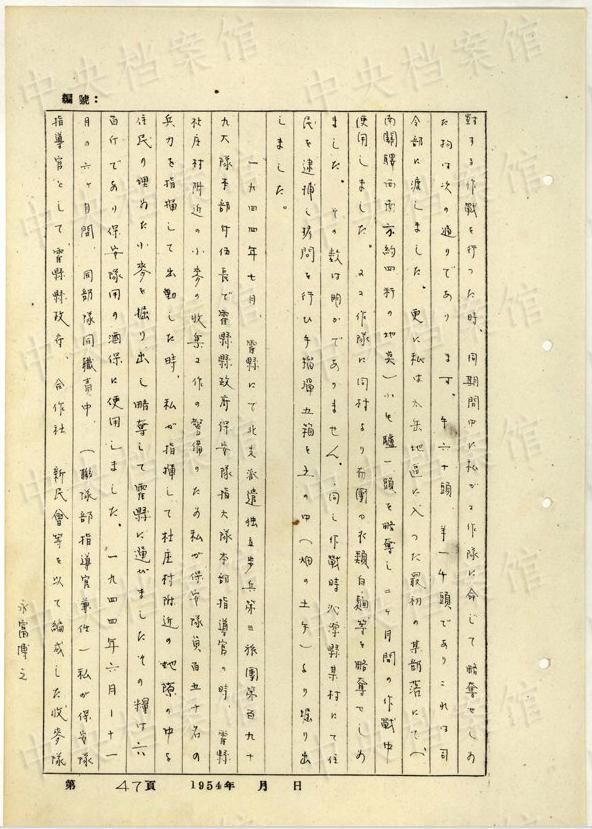 編號：
対する作戦を行った時、同期間中に私が工作隊に命して略奪せしめ
た物は次の通りであります。牛六十頭 羊一〇頭でありこれは司
令部に渡しました。更に私は太岳地区に入った最初の某部落にて（
南關驛西南方約四粁の地点）小モ驢一頭を略奪し二ヶ月間の作戦中
使用しました。又工作隊に同村より布團の衣類白麺等を略奪せしめ
ました。その数は明かでありません。同じ作戦時沁源縣某村にて住
民を逮捕し拷問を行ひ手榴弾五箱を土の中（畑の土手）より堀り出
しました。
一九四四年七月、霍縣にて北支派遣独立歩兵第三旅團第百九十
九大隊本部付伍長で霍縣縣政府保安隊指大隊本部指導官の時、霍縣
杜庄村附近の小麦の收集工作の警備のため私が保安隊員百五十名の
兵力を指揮して出動した時、私が指揮して杜庄村附近の地隙の中る
住民の埋めた小麥を掘り出し略奪して霍縣に運びましたその糧は六
百斤であり保安隊用の酒保に使用しました。一九四四年六月ー十一
月の六ヶ月間、同部隊同職責中、（聯隊部指導官兼任）私が保安隊
指導官として霍縣縣政府、合作社 新民會等を以て編成した收麥隊
永富博之
第 47頁 1954年 月 日
中央档案馆